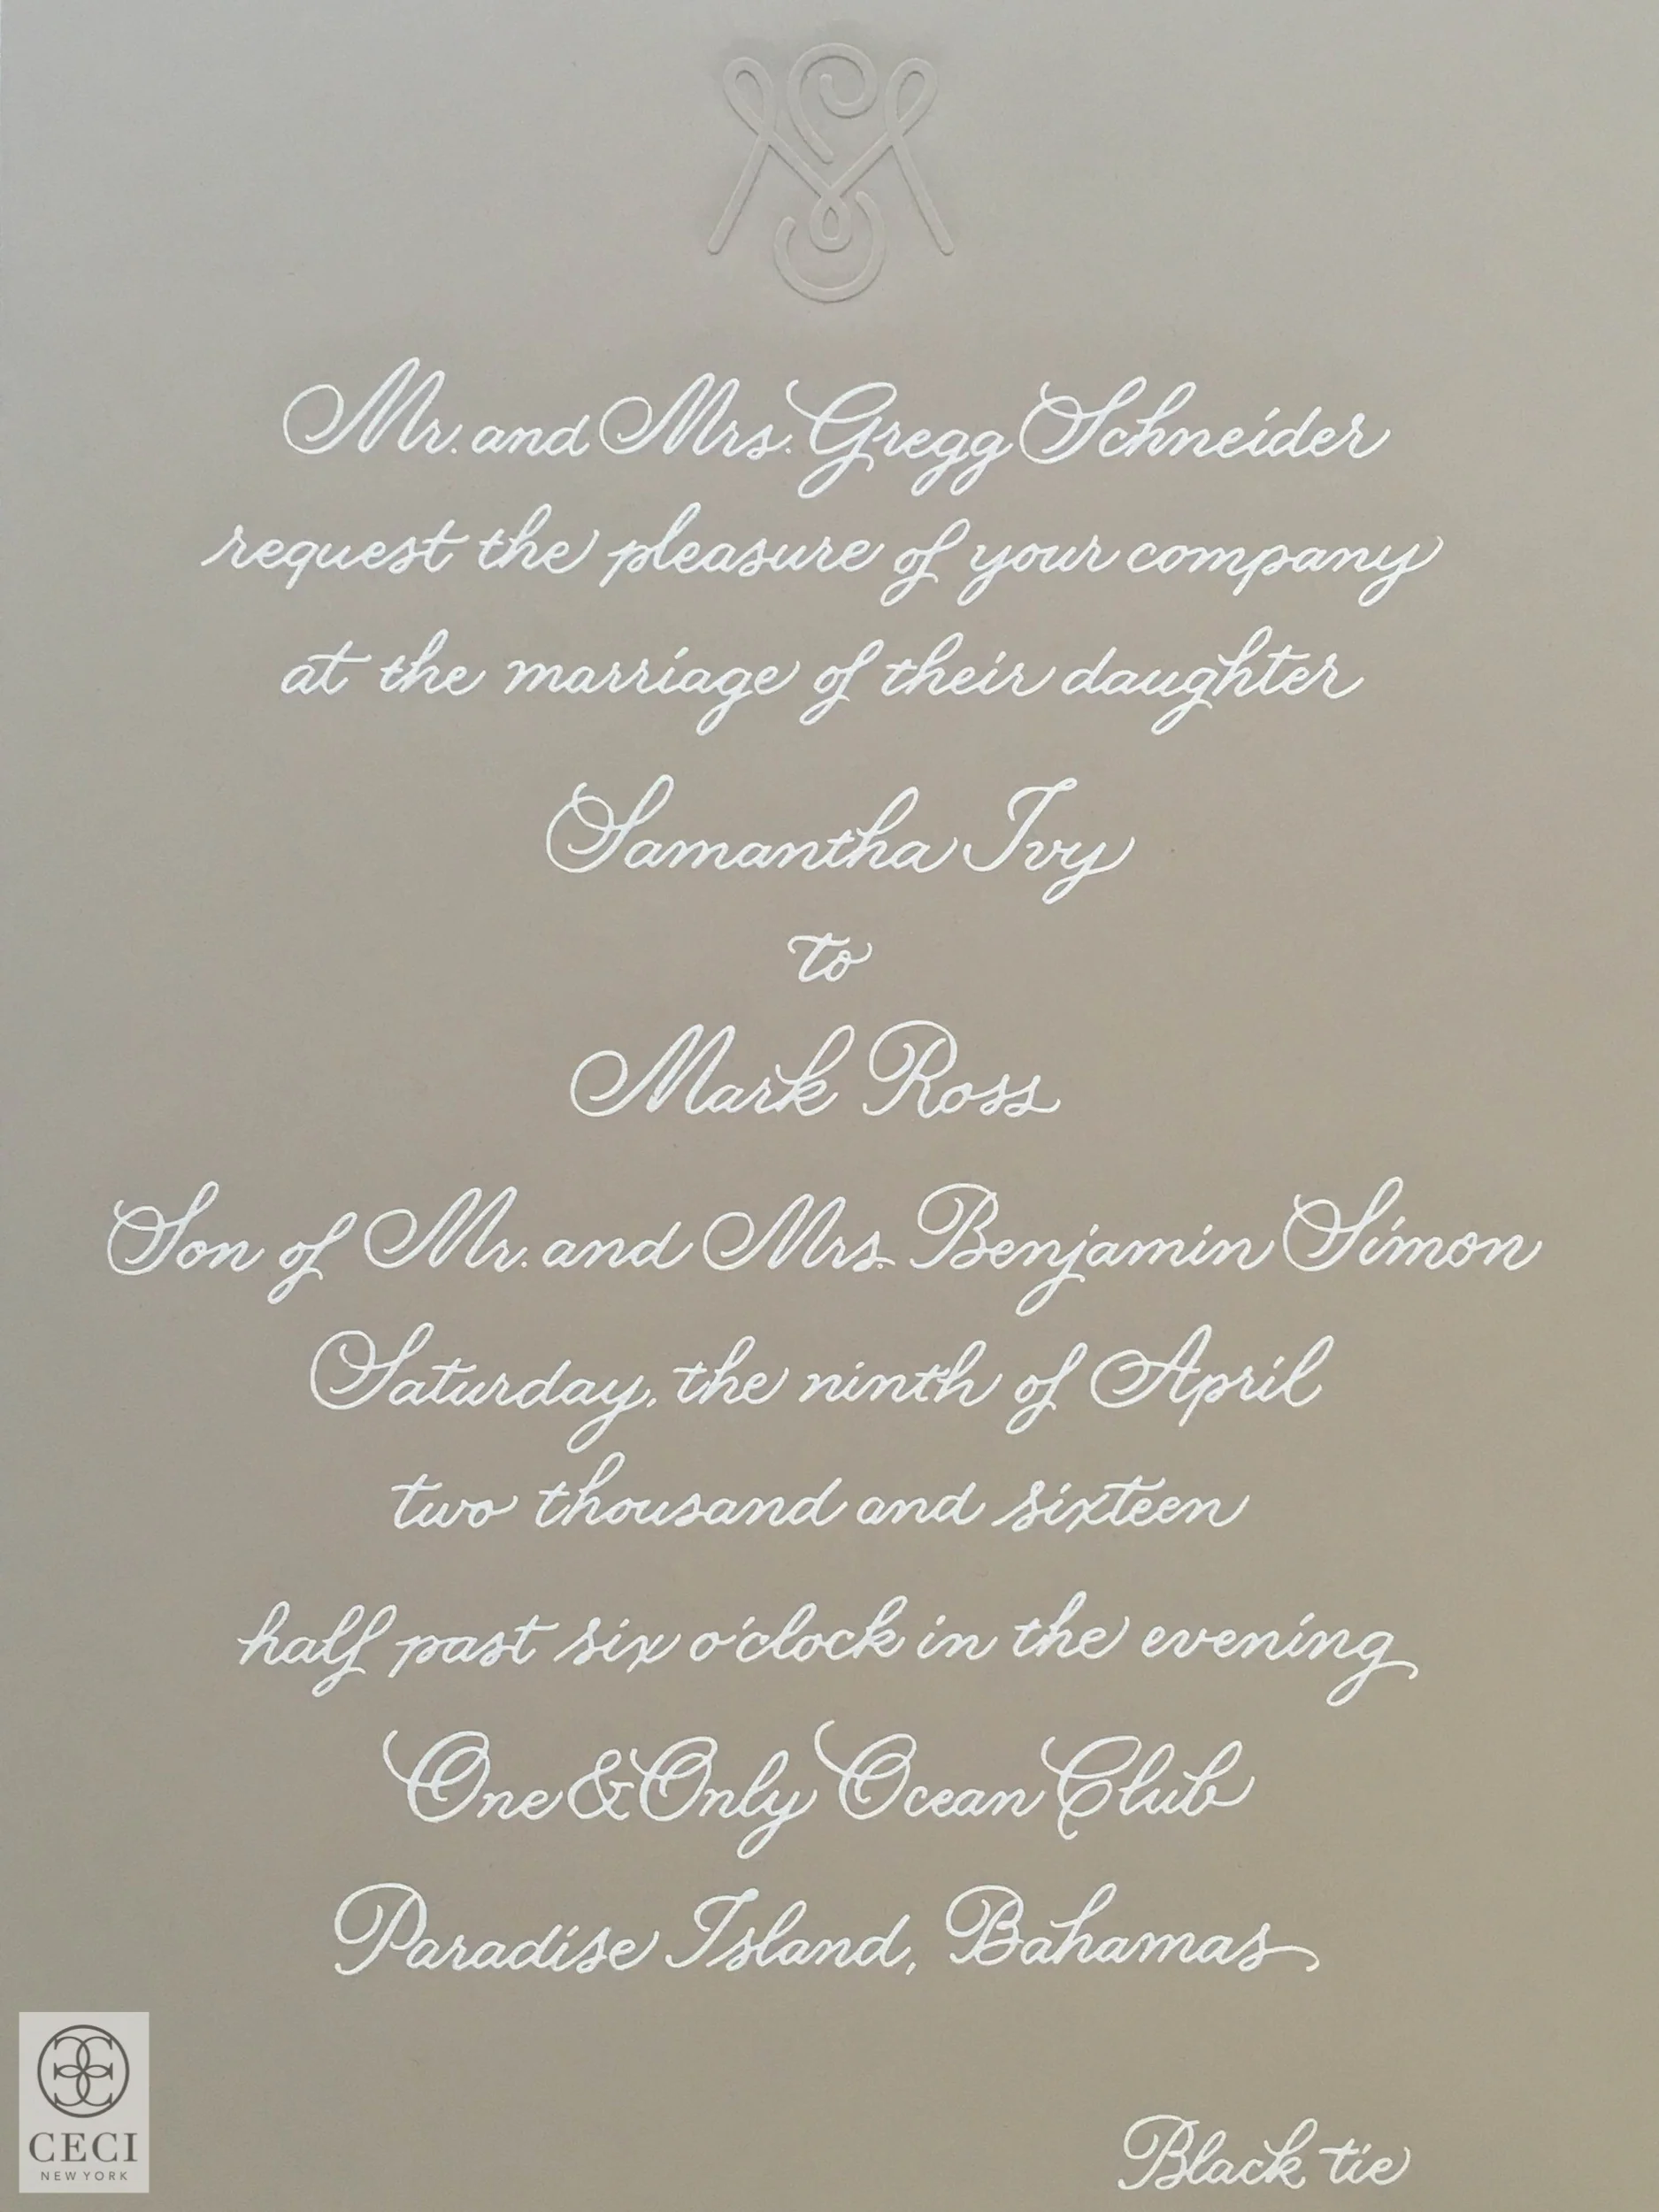 Mr. and Mrs. Gregg Schneider
request the pleasure of your company
at the marriage of their daughter
Samantha Ivy
to
Mark Ross
Son of Mr. and Mrs. Benjamin Simon
Saturday, the ninth of April
two thousand and sixteen
half past six o'clock in the evening
One & Only Ocean Club
Paradise Island, Bahamas
Black tie
CECI
NEW YORK